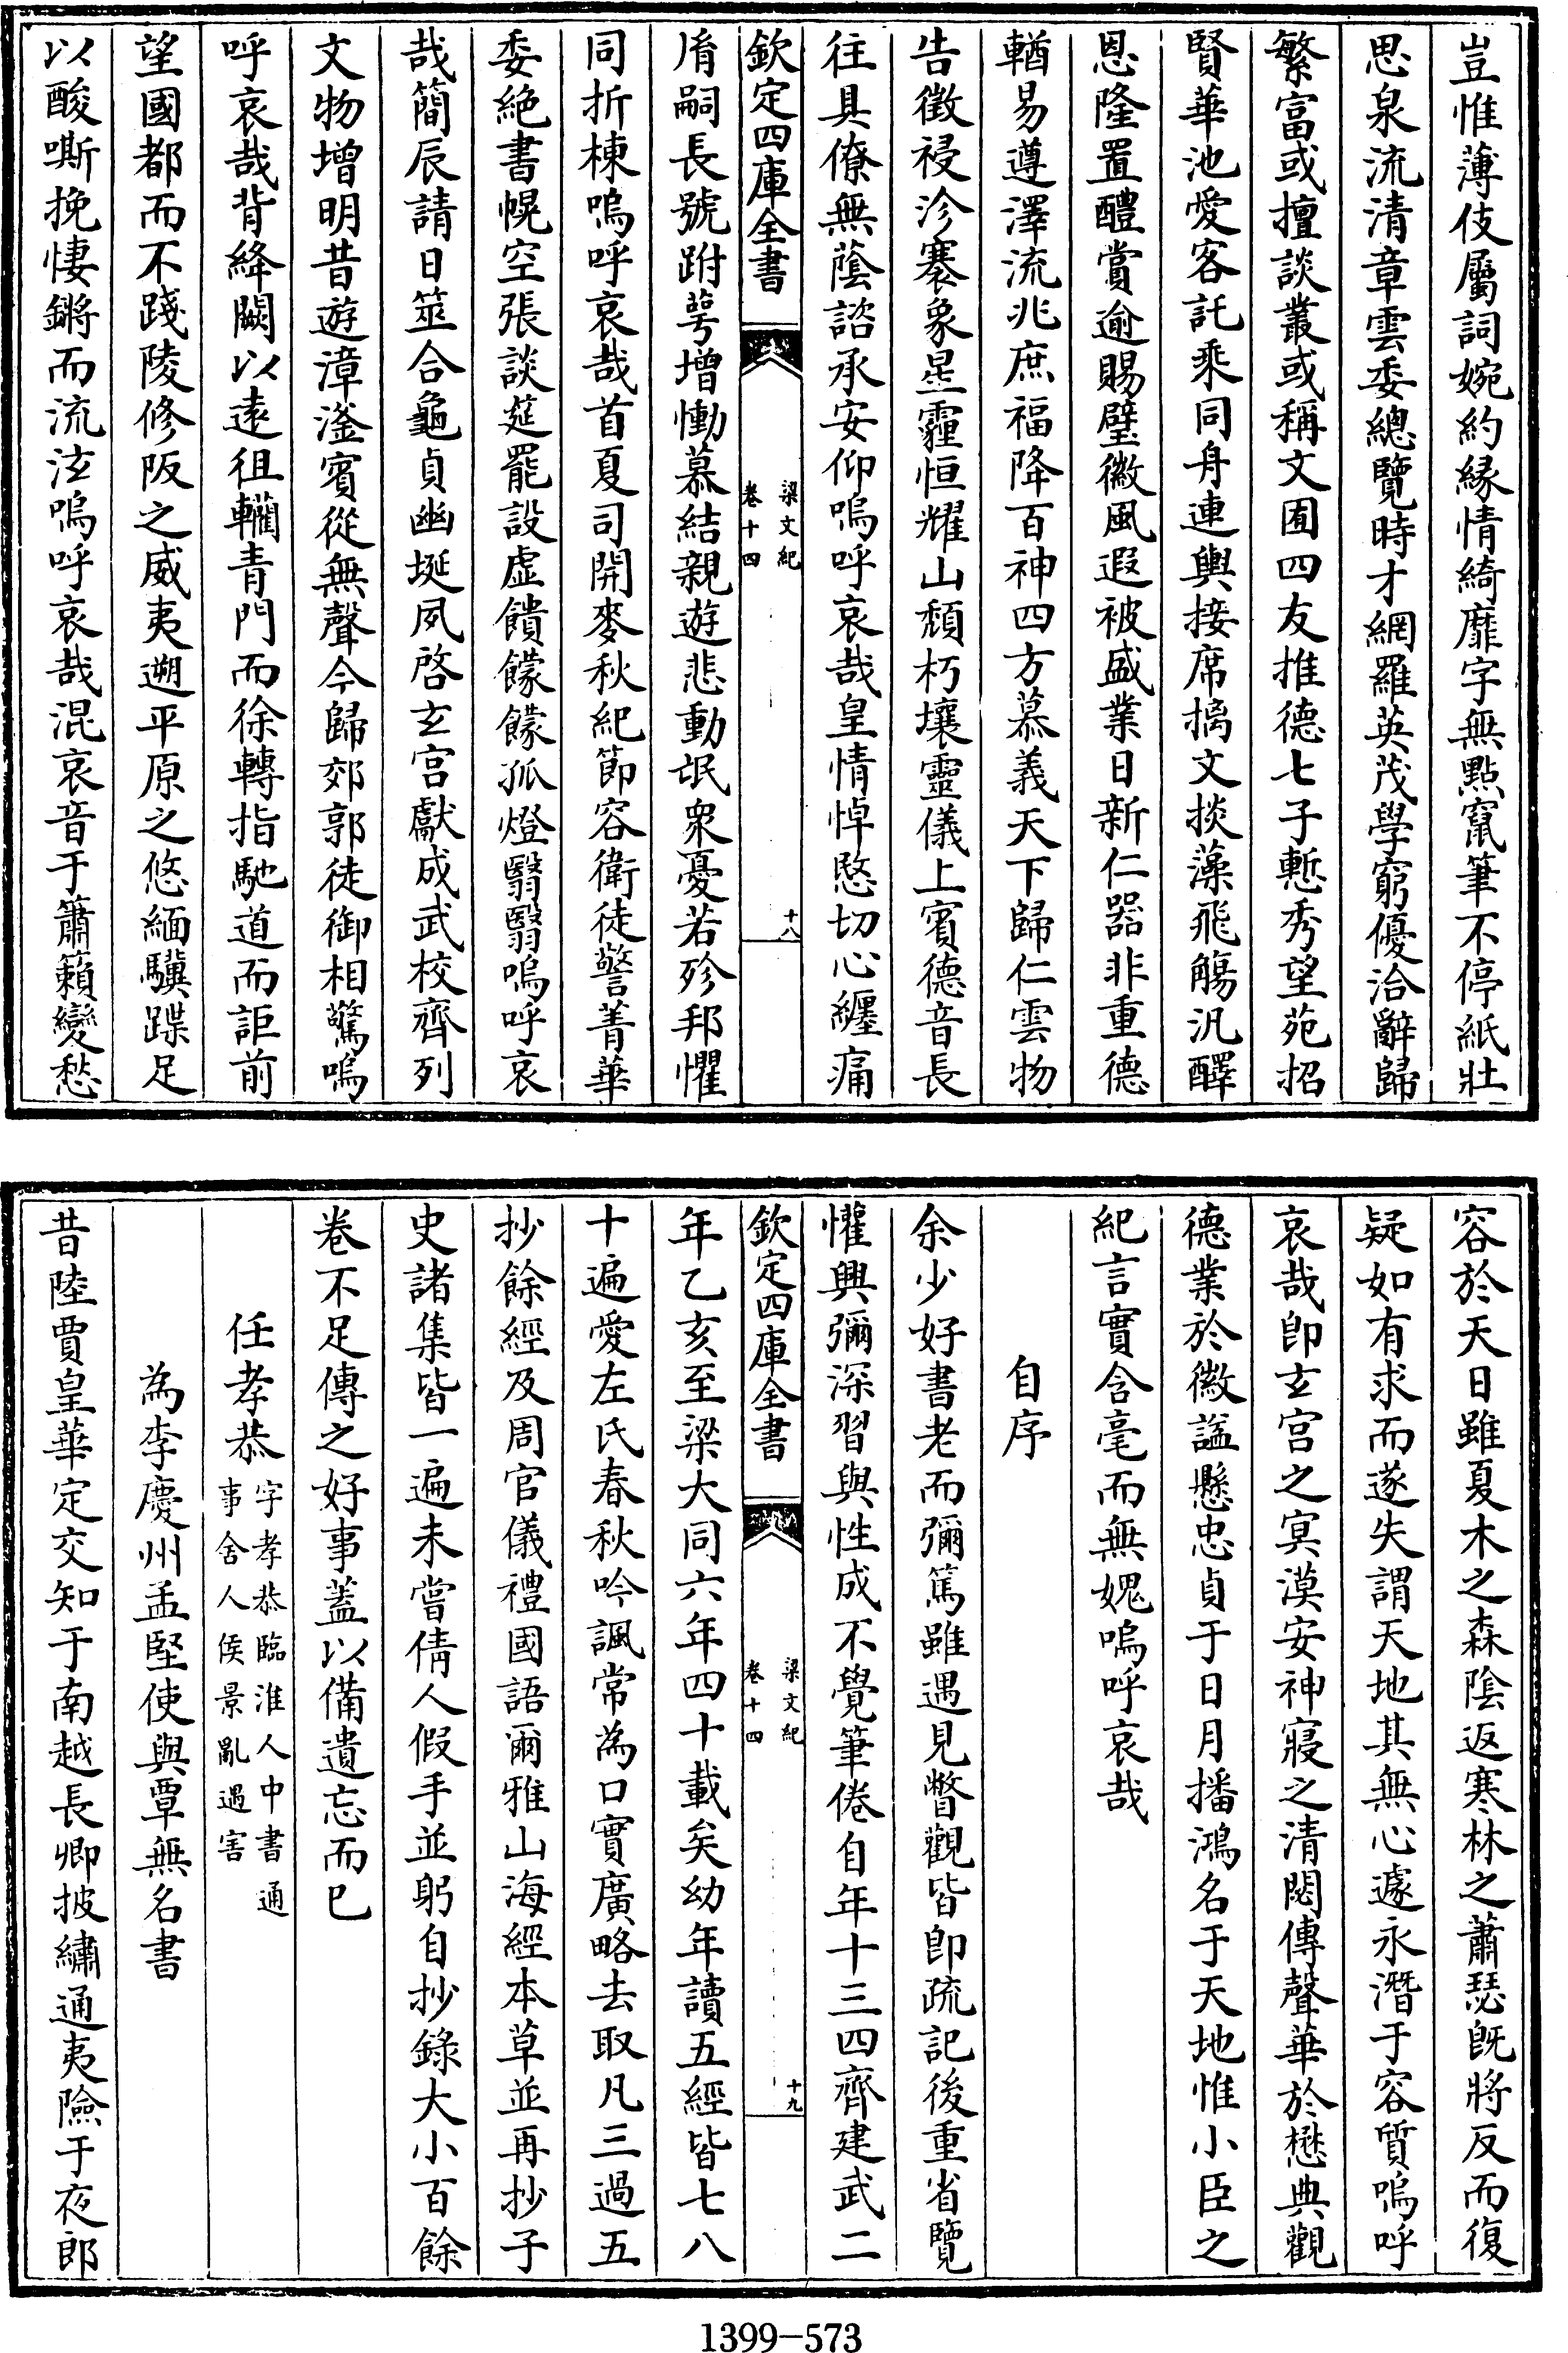 豈惟薄伎屬詞婉約緣情綺靡字無點竄筆不停紙壯
思泉流清章雲委總覽時才網羅英茂學窮優洽辭歸
繁富或擅談叢或稱文囿四友推德七子慙秀望苑招
賢華池愛客託乘同舟連輿接席摛文掞藻飛觴汎醳
恩隆置醴賞逾賜璧徽風遐被盛業日新仁器非重德
輶易遵澤流兆庶福降百神四方慕義天下歸仁雲物
告徵祲沴褰象星霾恒耀山頹朽壤靈儀上賓德音長
往具僚無蔭諮承安仰嗚呼哀哉皇情悼愍切心纏痛
欽定四庫全書
梁文紀
卷十四
十八
胤嗣長號跗萼增慟慕結親遊悲動氓衆憂若殄邦懼
同折棟嗚呼哀哉首夏司開麥秋紀節容衛徒警菁華
委絕書幌空張談筵罷設虛饋饛饛孤燈翳翳嗚呼哀
哉簡辰請日筮合龜貞幽埏夙啓玄宮獻成武校齊列
文物增明昔遊漳滏賓從無聲今歸郊郭徒御相驚嗚
呼哀哉背絳闕以遠徂轥青門而徐轉指馳道而詎前
望國都而不踐陵修阪之威夷遡平原之悠緬驥蹀足
以酸嘶挽悽鏘而流泫嗚呼哀哉混哀音于簫籟變愁
容於天日雖夏木之森陰返寒林之蕭瑟旣將反而復
疑如有求而遂失謂天地其無心遽永潛于容質嗚呼
哀哉卽玄宮之冥漠安神寢之清閟傳聲華於懋典觀
德業於徽謚懸忠貞于日月播鴻名于天地惟小臣之
紀言實含毫而無媿嗚呼哀哉
自序
余少好書老而彌篤雖遇見瞥觀皆卽疏記後重省覽
懽興彌深習與性成不覺筆倦自年十三四齊建武二
欽定四庫全書
梁文紀
卷十四
十九
年乙亥至梁大同六年四十載矣幼年讀五經皆七八
十遍愛左氏春秋吟諷常為口實廣略去取凡三過五
抄餘經及周官儀禮國語爾雅山海經本草並再抄子
史諸集皆一遍未嘗倩人假手並躬自抄錄大小百餘
卷不足傳之好事蓋以備遺忘而已
任孝恭字孝恭臨淮人中書通事舍人侯景亂遇害
為李慶州孟堅使與覃無名書
昔陸賈皇華定交知于南越長卿披繡通夷險于夜郎
1399-573